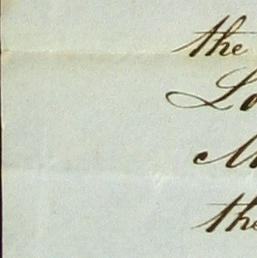 the
Lo
M
the